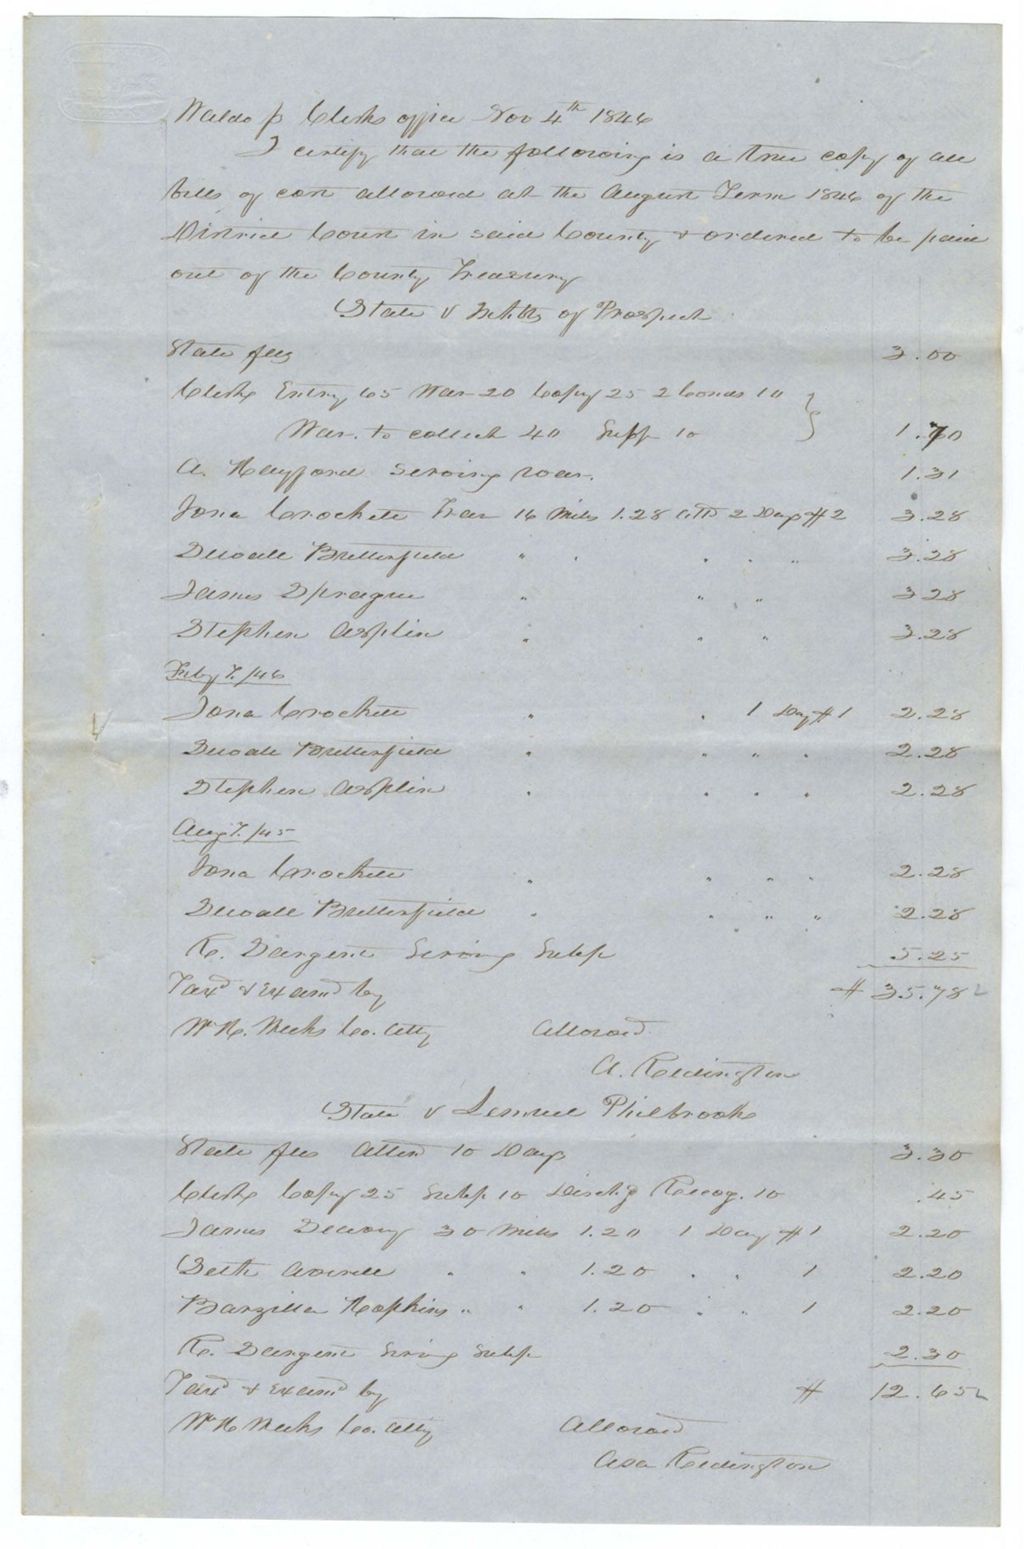 Waldo ss Clerks office Nov 4th 1846
I certify that the following is a true copy of all
bills of cost allowed at the August Term 1846 of the
District Court in said County & ordered to be paid
out of the County Treasury
State v Inhbts of Prospect
State fees 3.00
Clerks Entry 65 War 20 Copy 25 2 Conts 10 }
War. to collect 40 Supp 10 1.70
A. Hayford serving war. 1.31
Jona Crockett Trav 16 Miles 1.28 Attd 2 Days $2 3.28
Butterfield " " " " " 3.28
James Sprague " " " 3.28
Stephen " " " 3.28
Feby T. /46
Jona Crockett " " 1 Day $1 2.28
Butterfield " " " " 2.28
Stephen " " " " 2.28
Aug T. /45
Jona Crockett " " " " 2.28
Butterfield " " " " 2.28
Sargent Serving Subp 5.25
Taxd & Examd by $ 35.78
Wm H. Weeks Co. Atty Allowed
A. Redington
State v Lemuel Philbrooks
State fees Attend 10 Days 3.30
Clerks Copy 25 Subp 10 Dischg Recog. 10 .45
James 30 Miles 1.20 1 Day $1 2.20
Seth " " 1.20 " " 1 2.20
Barzilla Hopkins " " 1.20 " " 1 2.20
Sargent Serving Subp 2.30
Taxd & Examd by $ 12.65
Wm H Weeks Co. Atty Allowed
Asa Redington